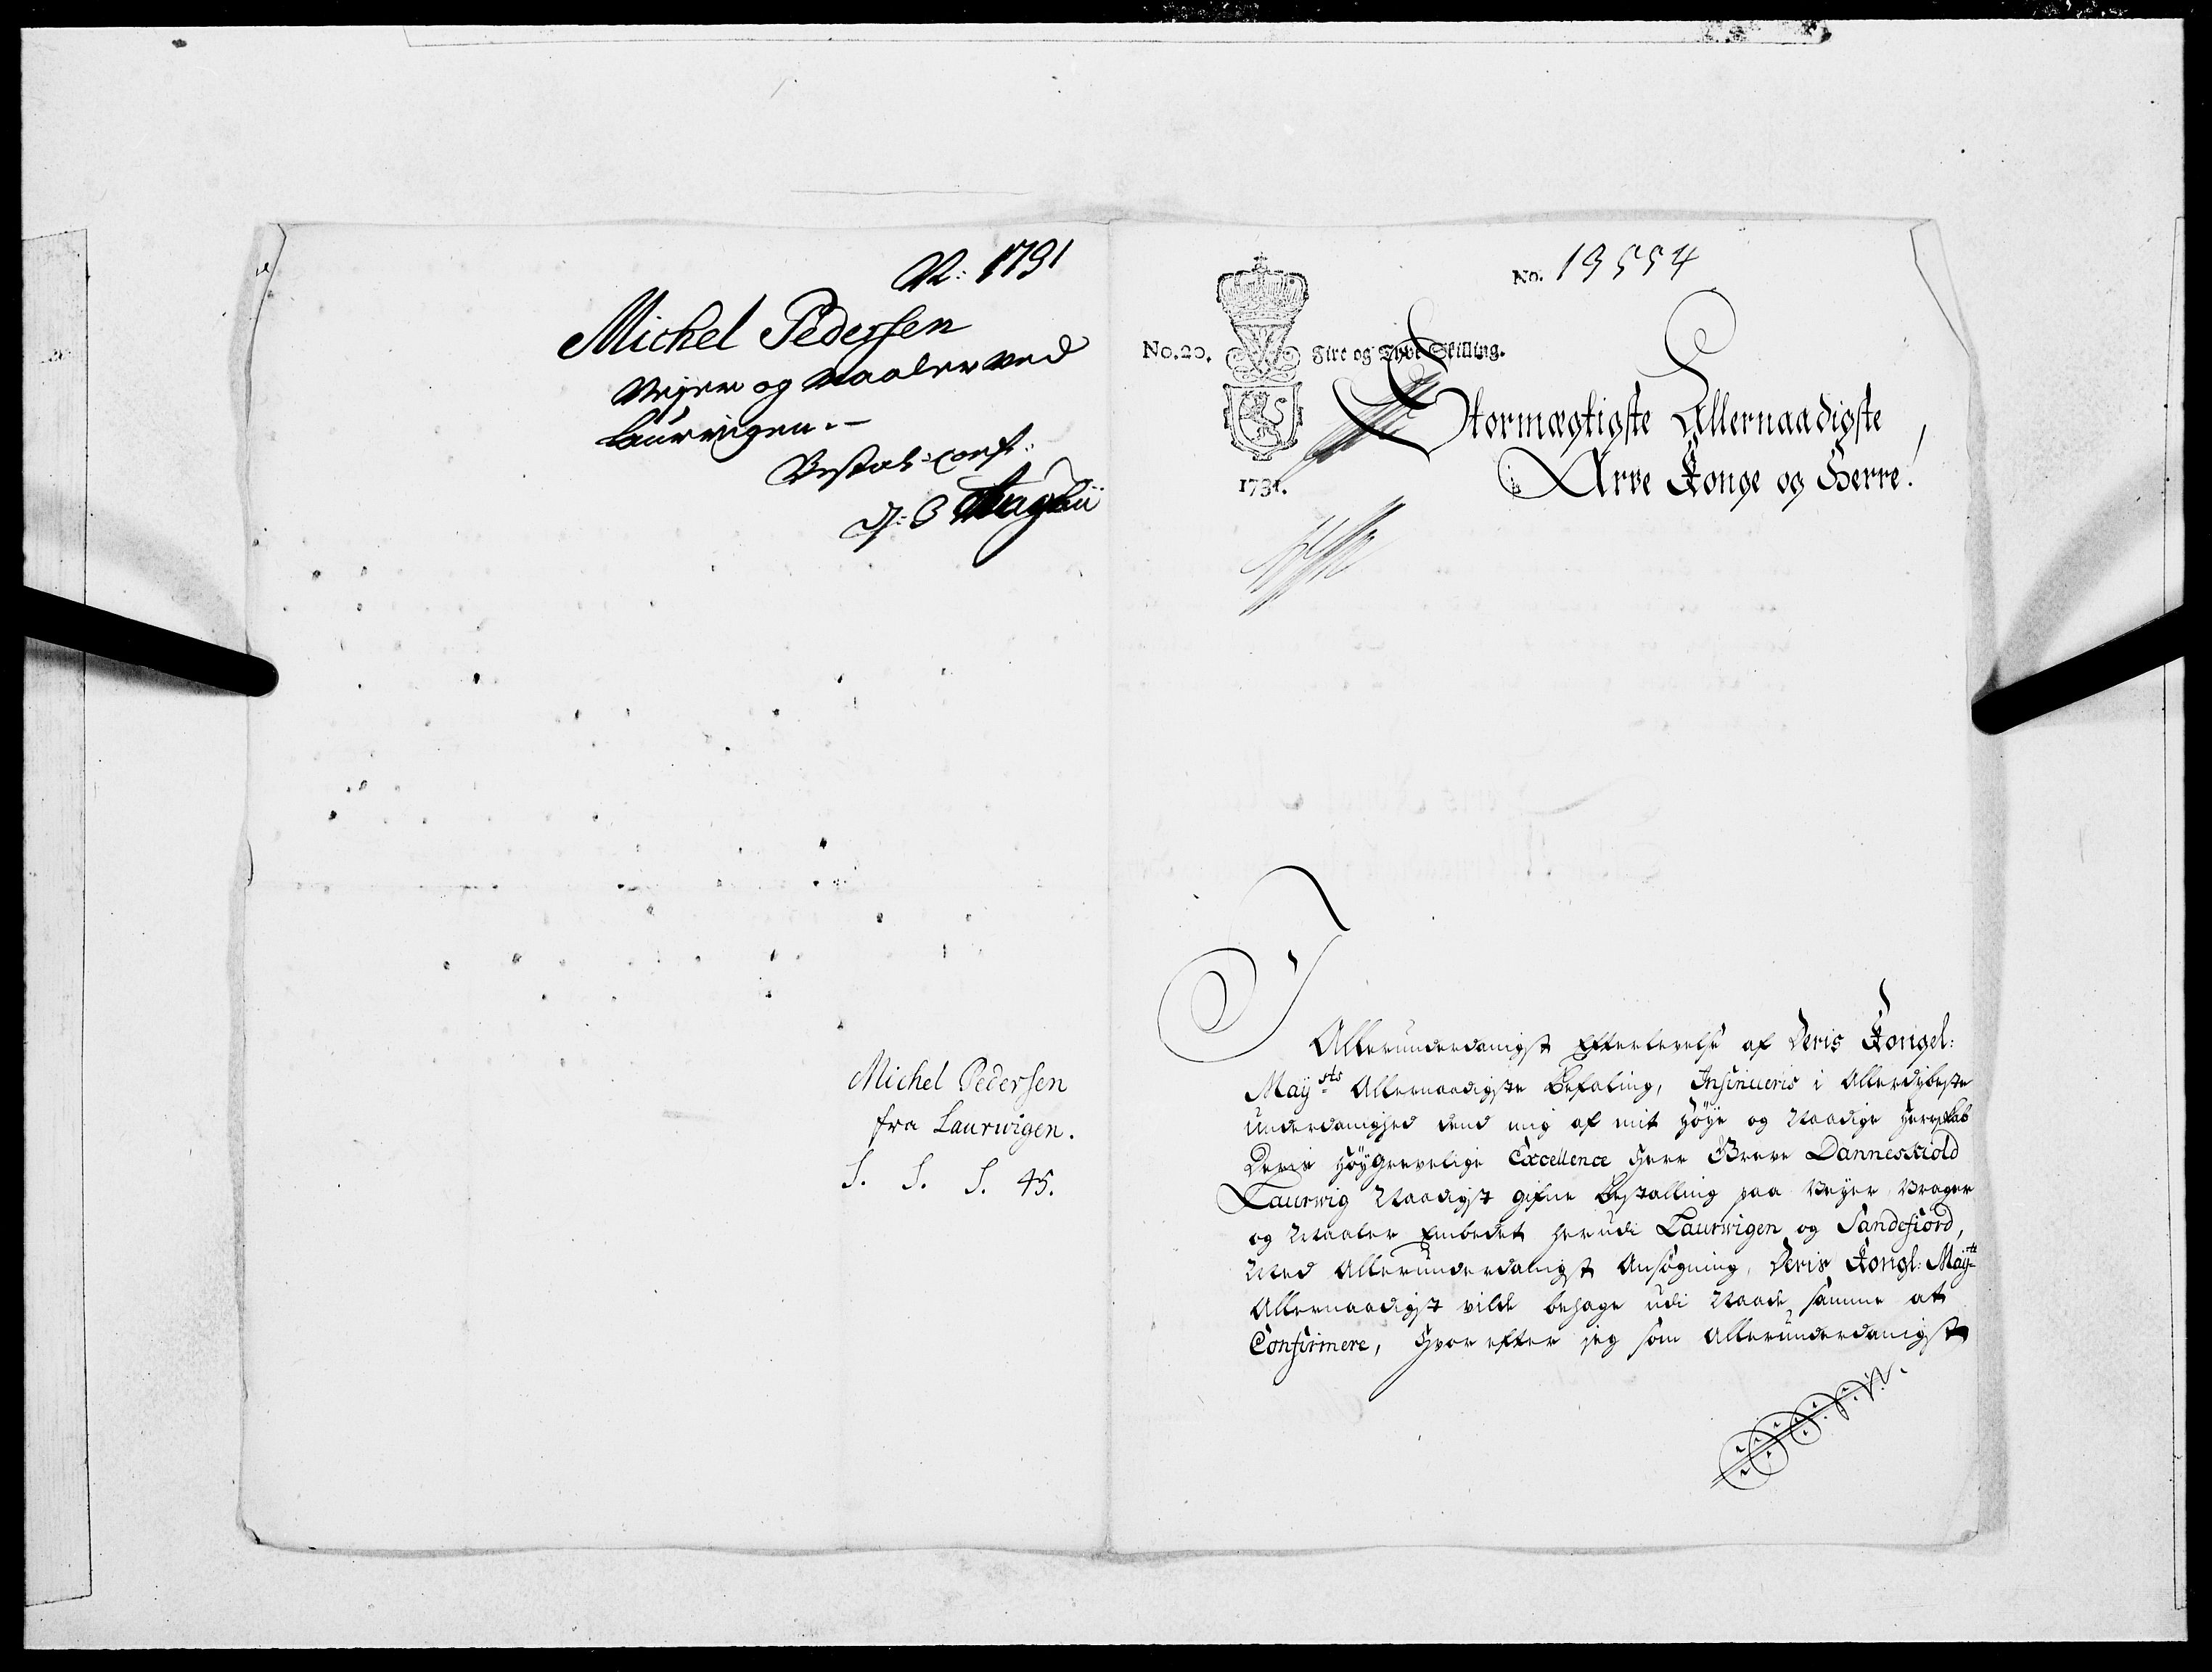 N: 1731
Michel Pedersen
Vejer og Maaler ved
Laurwigen.-
Bestal: conf:
d: 3 Augu
Michel Pedersen
fra Laurwigen.
S. S. S. 45.
No. 13554
No.20. Fire og Tyve Skilling.
1731.
Stormægtigste Allernaadigste
Arve Konge og Herre!
I
Allerunderdanigst Efterlevelse af Deris Kongel:
Mayts Allernaadigste Befaling, Insinueris i Allerdybeste
underdanighed dend mig af mit høye og Naadige Herskab
Deris Høygrevelige Excellence Herr Greve Danneskiold
Laurwig Naadigst gifne Bestalling paa Veyer Vrager
og Maaler Embedet her udi Laurwigen og Sandefiord,
Med Allerunderdanigst Ansøgning, Deris Kongl: Mayts
Allernaadigst vilde behage udi Naade samme at
Confirmere, Hvor efter jeg som Allerunderdanigst